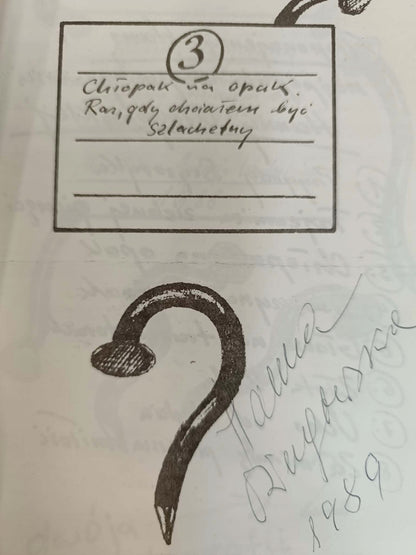 3
Chłopak na opak.
Raz, gdy chciałem być
szlachetny
Hanna
Ożogowska
1989